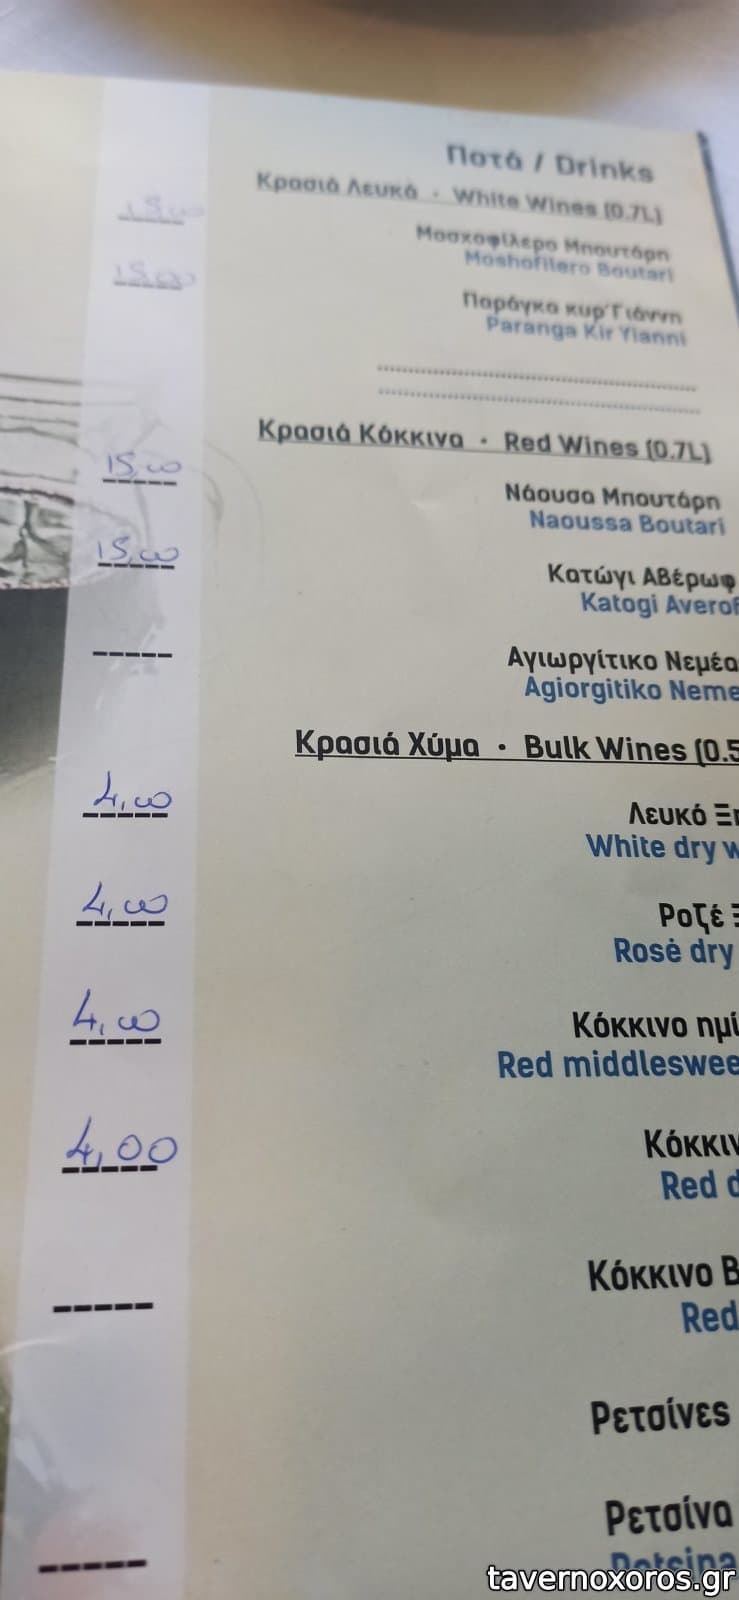 Ποτά / Drinks
Κρασιά Λευκά · White Wines (0.7L)
15,00 Μοσχοφίλερο Μπουτάρη
Moshofilero Boutari
15,00 Παράγκα κυρ'Γιάννη
Paranga Kir Yianni
Κρασιά Κόκκινα · Red Wines (0.7L)
15,00 Νάουσα Μπουτάρη
Naoussa Boutari
15,00 Κατώγι Αβέρωφ
Katogi Averof
Αγιωργίτικο Νεμέα
Agiorgitiko Neme
Κρασιά Χύμα · Bulk Wines (0.5
4,00 Λευκό
White dry w
4,00 Ροζέ
Rosé dry
4,00 Κόκκινο ημί
Red middleswee
4,00 Κόκκιν
Red d
Κόκκινο Β
Red
Ρετσίνες
Ρετσίνα
Retsina
tavernoxoros.gr